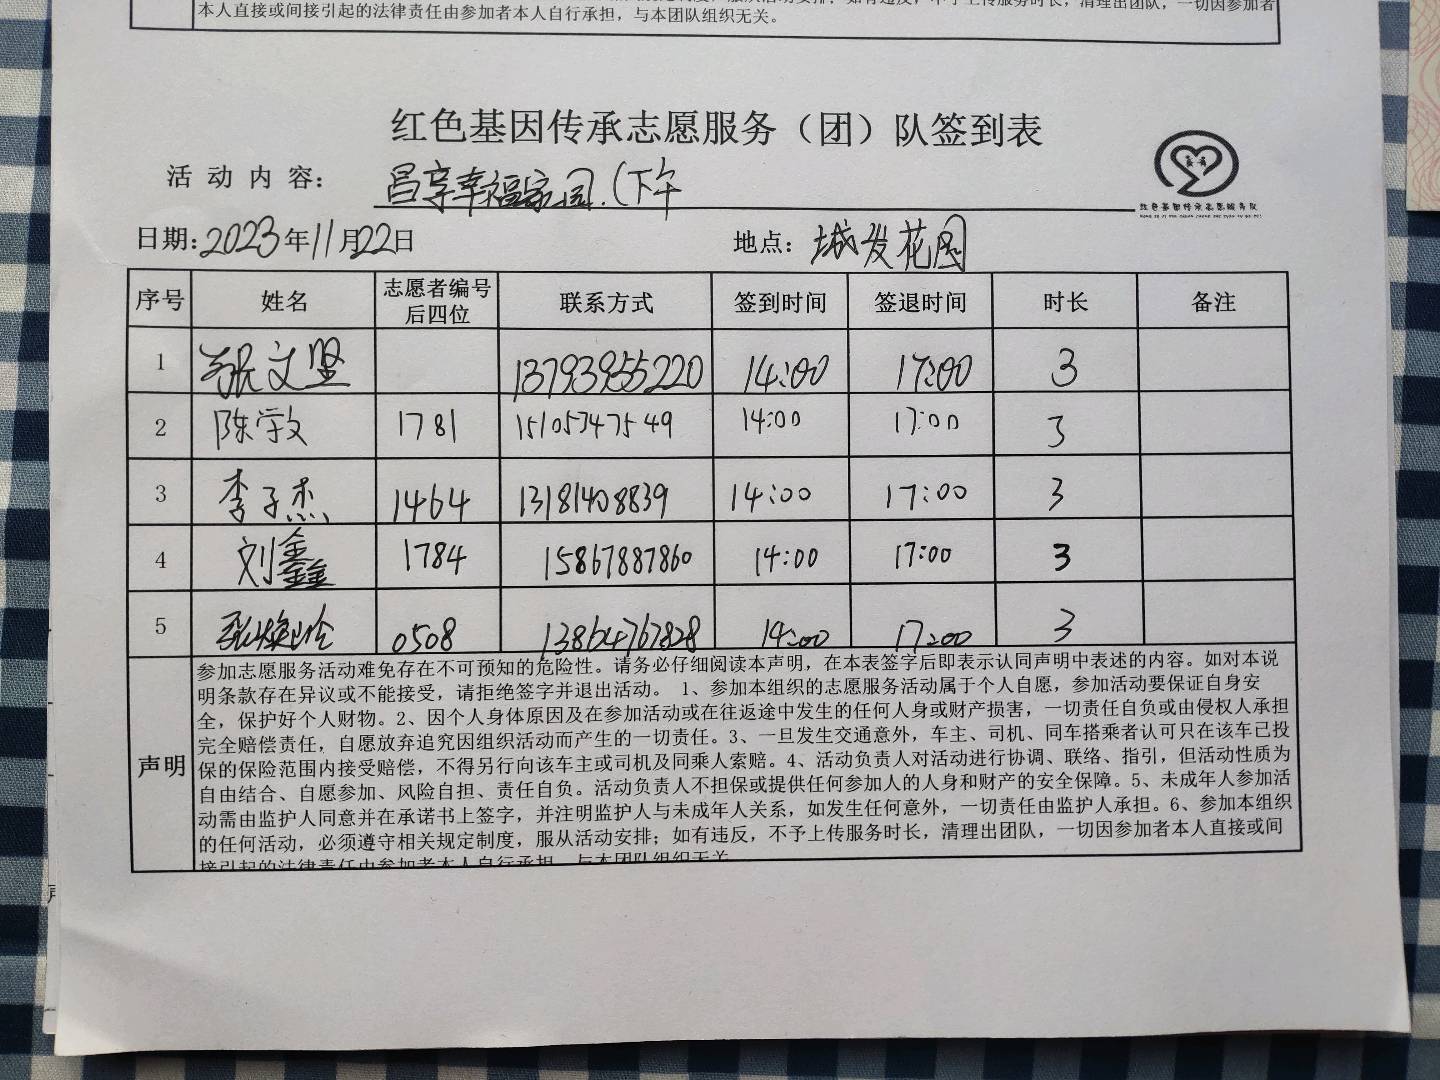 本人直接或间接引起的法律责任由参加者本人自行承担，与本团队组织无关。
红色基因传承志愿服务（团）队签到表
活动内容： 昌享幸福家园.（下午
红色基因传承志愿服务队
日期：2023年11月22日 地点：城发花园
序号 姓名 志愿者编号后四位 联系方式 签到时间 签退时间 时长 备注
1 张文坚 13793955220 14:00 17:00 3
2 陈学敏 1781 15105347549 14:00 17:00 3
3 李子杰 1464 13181408839 14:00 17:00 3
4 刘鑫鑫 1784 15867887860 14:00 17:00 3
5 张焕玲 0508 13864767828 14:00 17:00 3
声明
参加志愿服务活动难免存在不可预知的危险性。请务必仔细阅读本声明，在本表签字后即表示认同声明中表述的内容。如对本说
明条款存在异议或不能接受，请拒绝签字并退出活动。 1、参加本组织的志愿服务活动属于个人自愿，参加活动要保证自身安
全，保护好个人财物。2、因个人身体原因及在参加活动或在往返途中发生的任何人身或财产损害，一切责任自负或由侵权人承担
完全赔偿责任，自愿放弃追究因组织活动而产生的一切责任。3、一旦发生交通意外，车主、司机、同车搭乘者认可只在该车已投
保的保险范围内接受赔偿，不得另行向该车主或司机及同乘人索赔。4、活动负责人对活动进行协调、联络、指引，但活动性质为
自由结合、自愿参加、风险自担、责任自负。活动负责人不担保或提供任何参加人的人身和财产的安全保障。5、未成年人参加活
动需由监护人同意并在承诺书上签字，并注明监护人与未成年人关系，如发生任何意外，一切责任由监护人承担。6、参加本组织
的任何活动，必须遵守相关规定制度，服从活动安排；如有违反，不予上传服务时长，清理出团队，一切因参加者本人直接或间
接引起的法律责任由参加者本人自行承担，与本团队组织无关